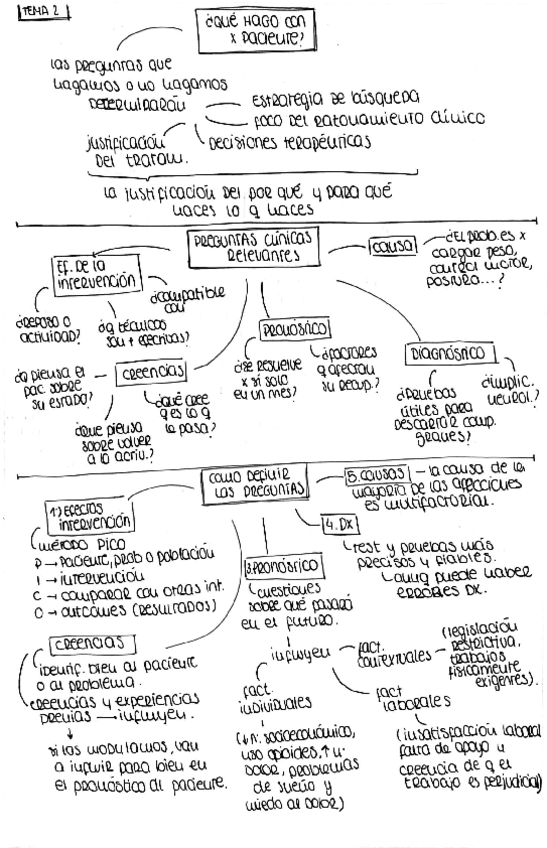 TEMA 2
¿QUÉ HAGO CON
X PACIENTE?
las preguntas que
hagamos o no hagamos
Determinarán
estrategia de búsqueda
foco del razonamiento clínico
Decisiones terapéuticas
justificación
Del tratam.
la justificación del por qué y para qué
haces lo q haces
PREGUNTAS CLÍNICAS
Relevantes
causa
¿El prob. es x
cargar peso,
control motor,
postura...?
Ef. De la
intervención
¿Reposo o
actividad?
¿q técnicas
son + efectivas?
¿compatible
con
creencias
¿q piensa el
pac. sobre
su estado?
¿Que piensa
sobre volver
a la activ.?
¿qué cree
q es lo q
le pasa?
Pronóstico
¿se resuelve
x si solo
en un mes?
¿factores
q afectan
su recup.?
DIAGNÓSTICO
¿Pruebas
útiles para
Descartar comp.
graves?
¿implic.
neurol.?
COMO DEFINIR
LAS PREGUNTAS
1.) Efectos
intervención
método PICO
P → Paciente, prob o población
I → intervención
C → comparar con otras int.
O → outcomes (resultados)
creencias
identif. bien al paciente
o al problema.
creencias y experiencias
previas → influyen.
si las modulamos, van
a influir para bien en
el pronóstico del paciente.
3. PRONÓSTICO
cuestiones
sobre qué pasará
en el futuro.
influyen
fact.
individuales
(↓ n. socioeconómico,
uso opioides, ↑ u.
dolor, problemas
de sueño y
miedo al dolor)
fact.
contextuales
(legislación
restrictiva,
trabajos
físicamente
exigentes).
fact
laborales
(insatisfacción laboral
falta de apoyo y
creencia de q el
trabajo es perjudicial)
4. DX
test y pruebas más
precisos y fiables.
aunq puede haber
errores DX.
5. causas – la causa de la
mayoría de las afecciones
es multifactorial.